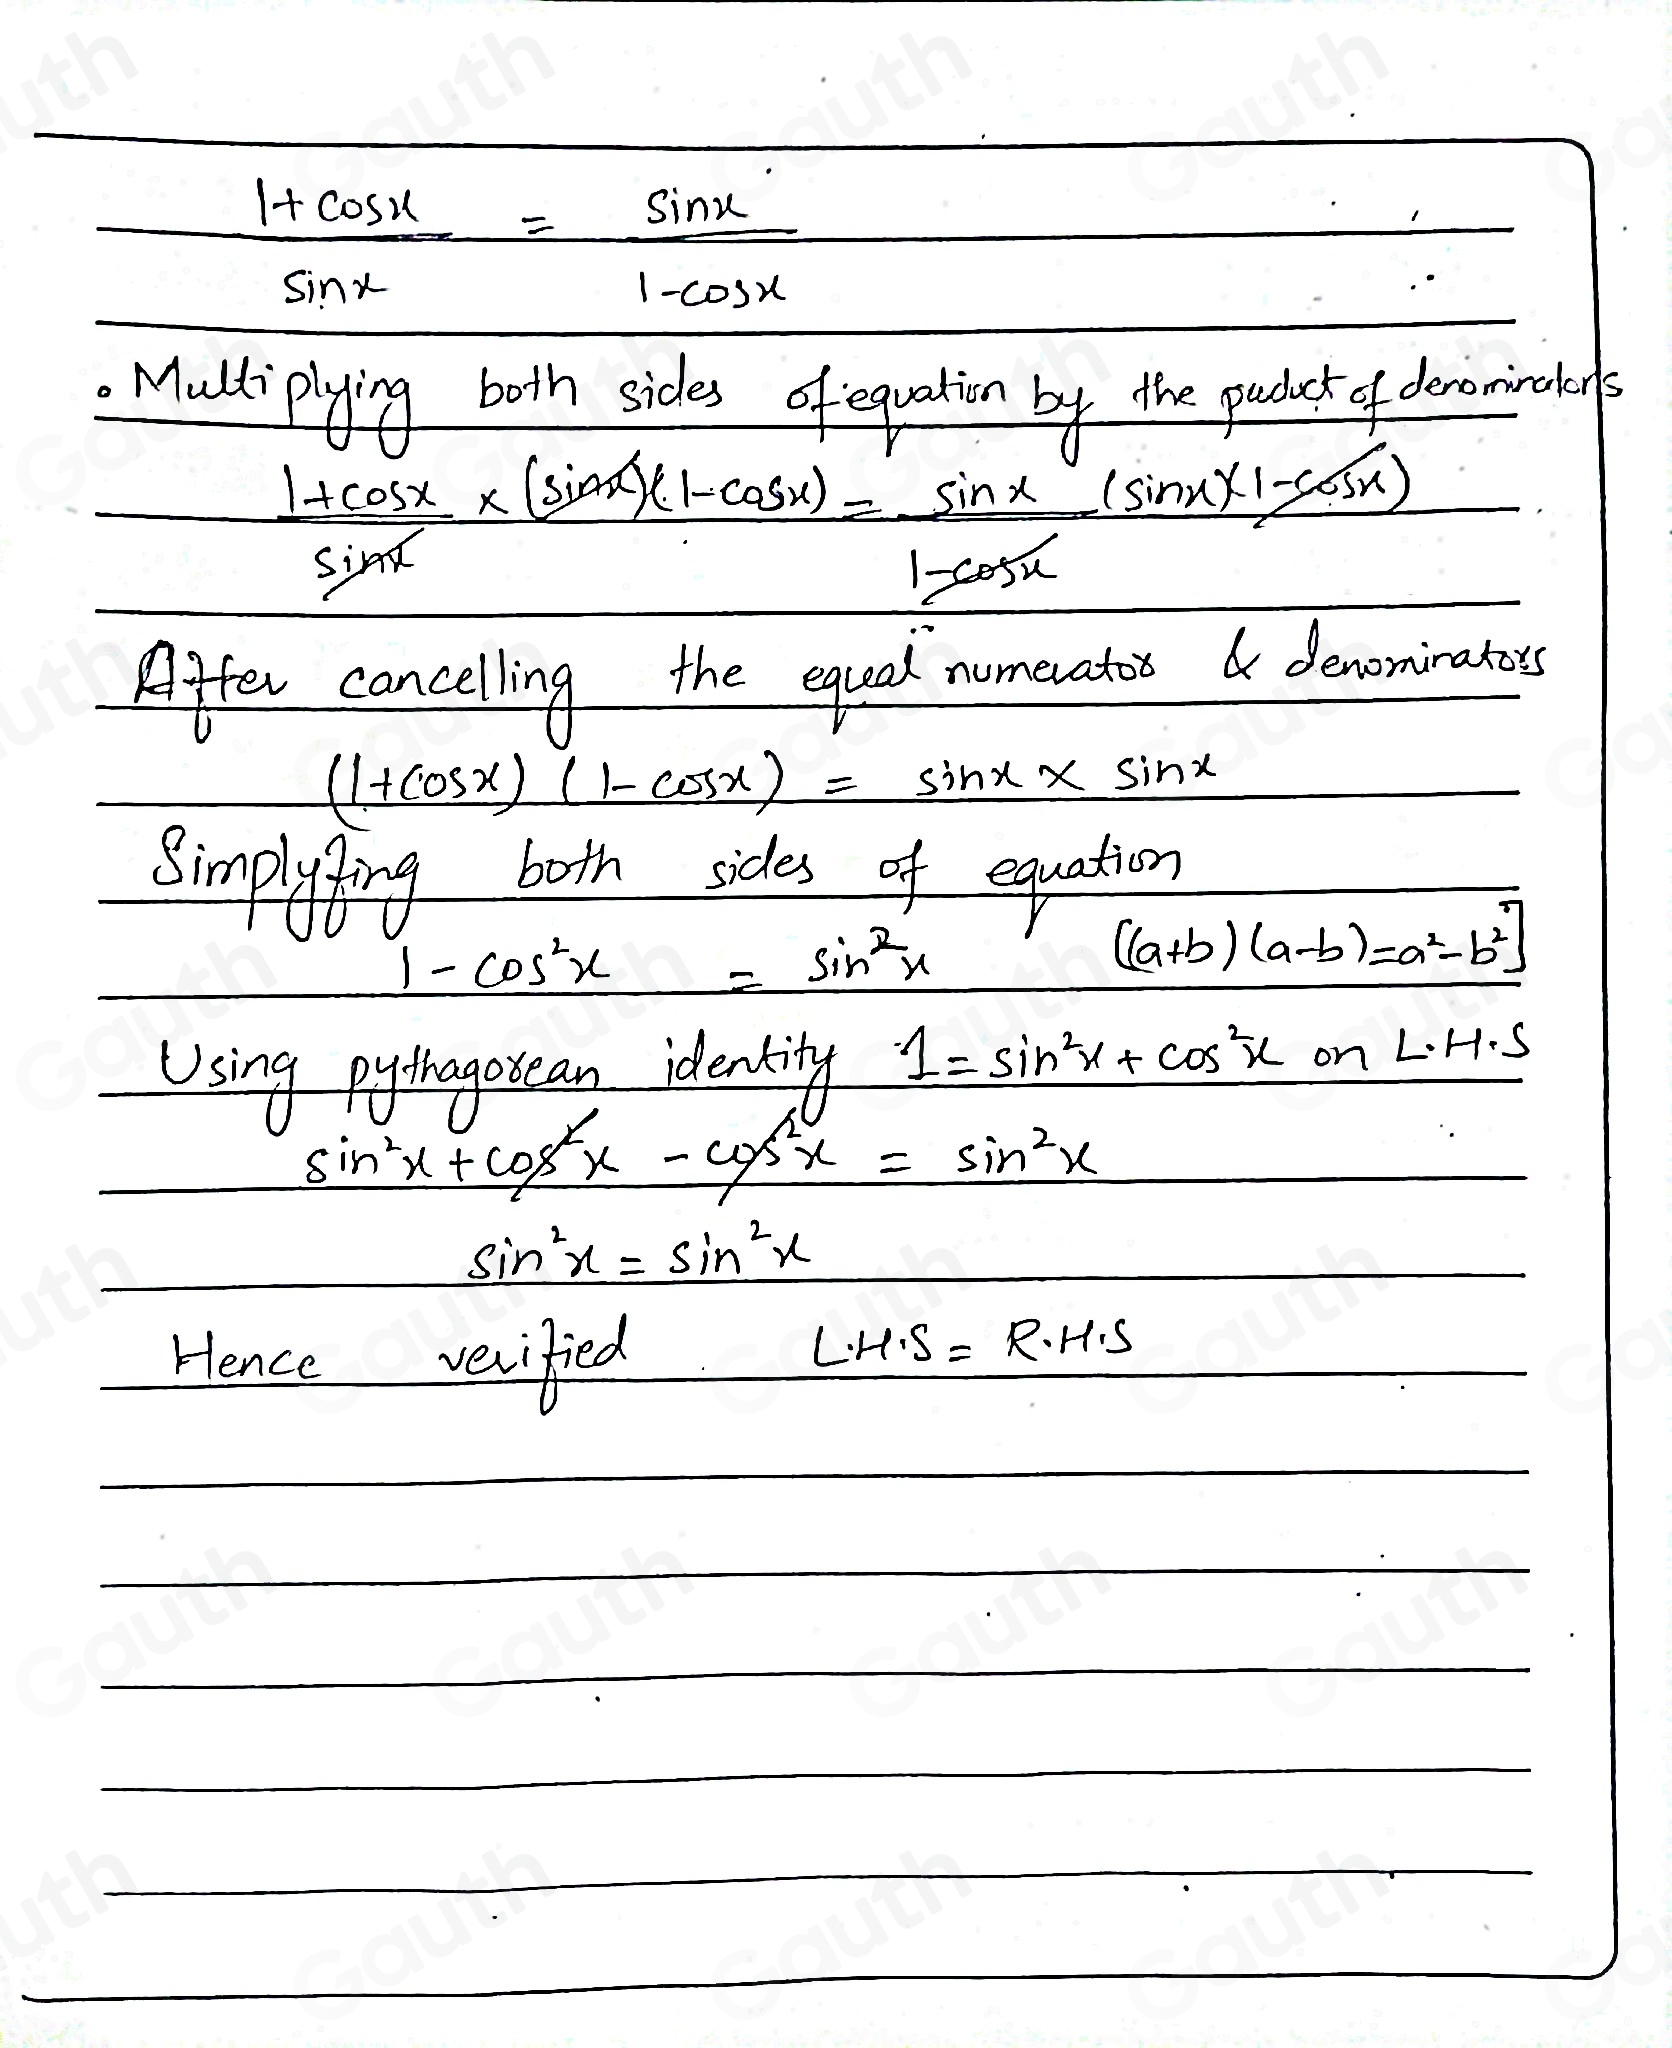 1+cosx = sinx
sinx 1-cosx
• Multiplying both sides of equation by the puduct of denominators
1+cosx × (sinx)(1-cosx) = sinx (sinx)(1-cosx)
sinx 1-cosx
After cancelling the equal numerator & denominators
(1+cosx) (1-cosx) = sinx × sinx
Simplyfing both sides of equation
1 - cos²x = sin²x [(a+b)(a-b)=a²-b²]
Using pythagorean identity 1=sin²x + cos²x on L.H.S
sin²x + cos²x - cos²x = sin²x
sin²x = sin²x
Hence verified L.H.S = R.H.S